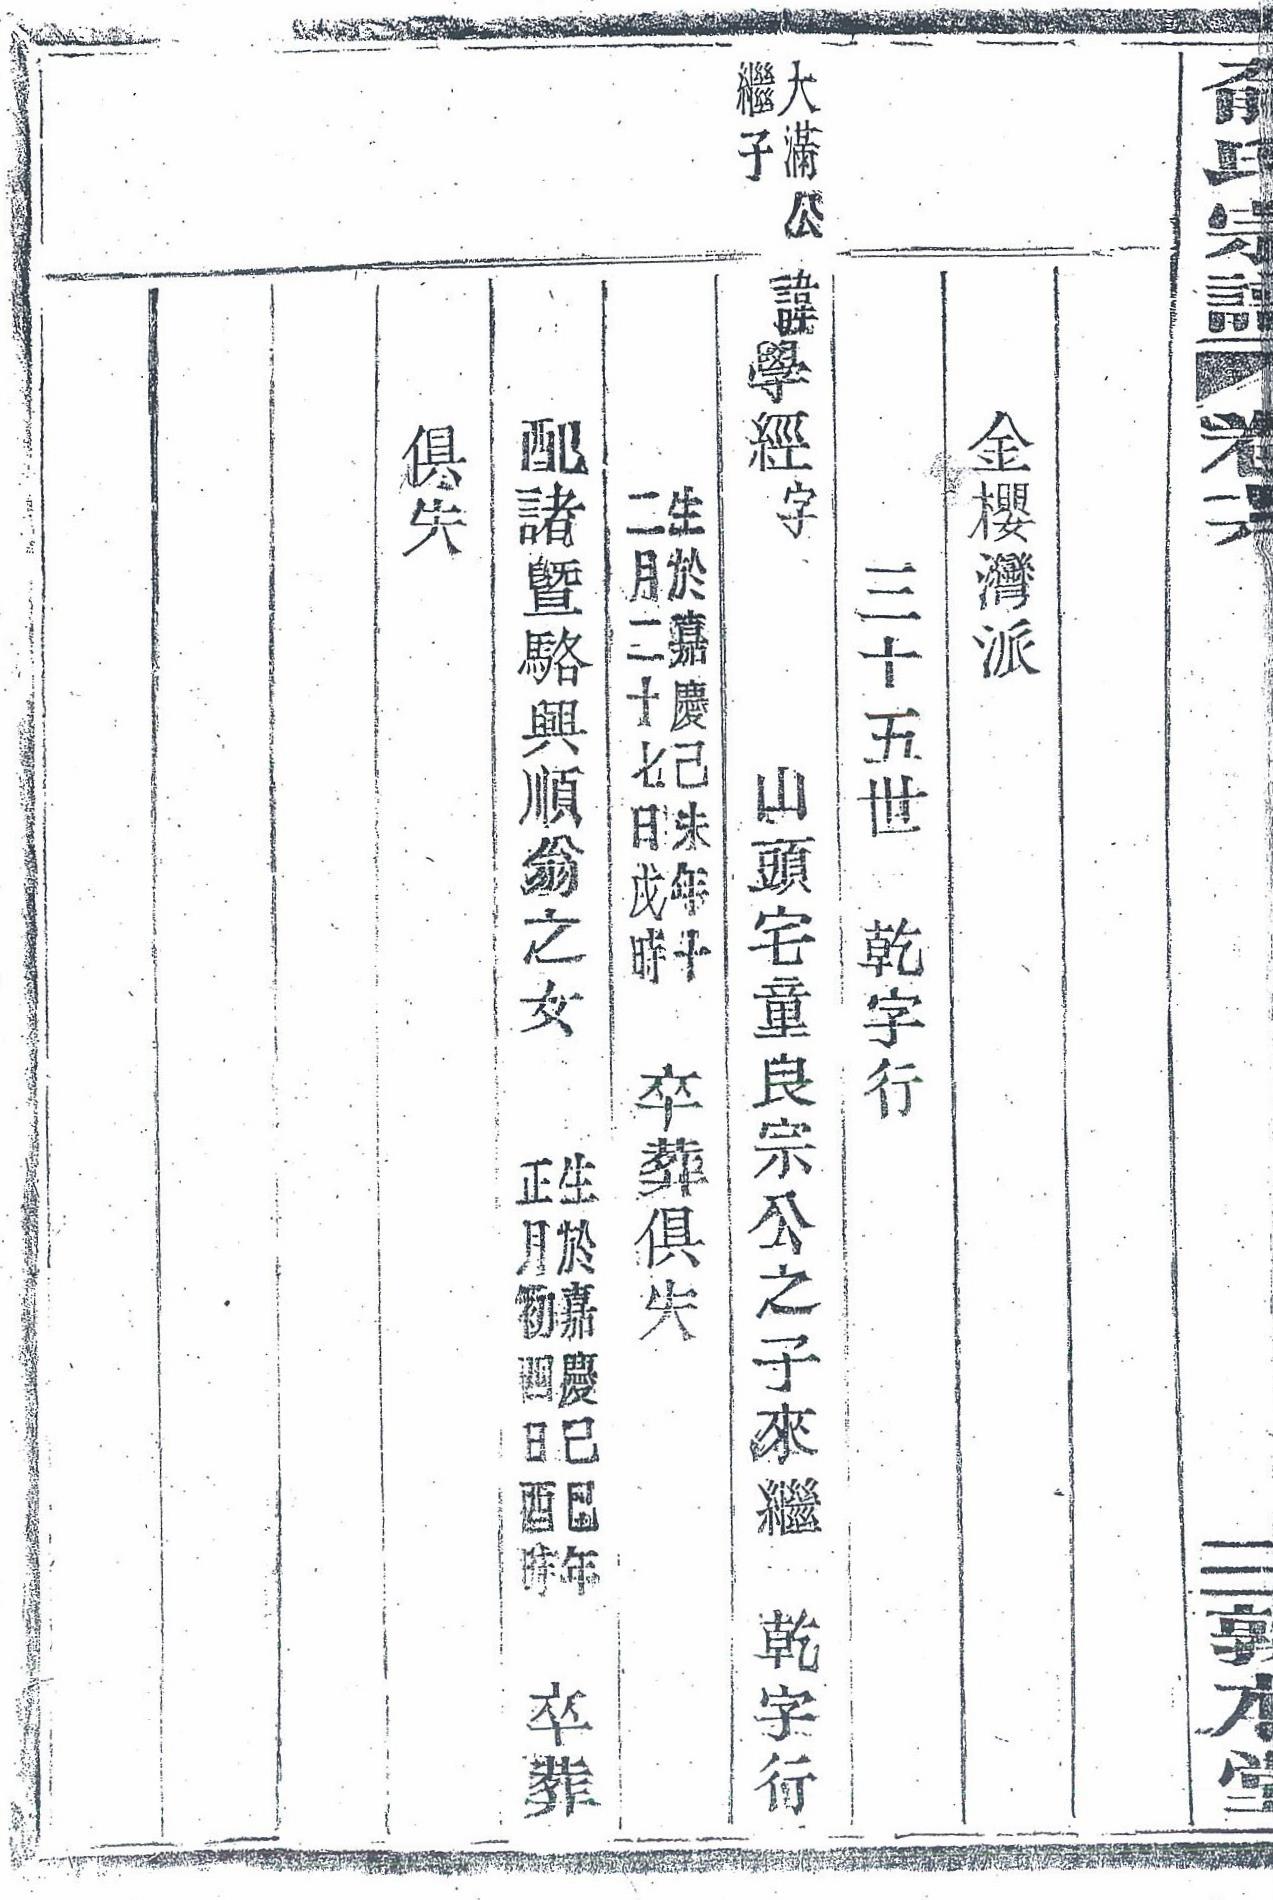 俞氏宗譜
卷六
三敦本堂
金櫻灣派
三十五世 乾字行
大滿公
繼子
諱學經字 山頭宅童良宗公之子來繼 乾字行
生於嘉慶己未年十
二月二十七日戌時
卒葬俱失
配諸暨駱興順翁之女
生於嘉慶己巳年
正月初四日酉時
卒葬
俱失